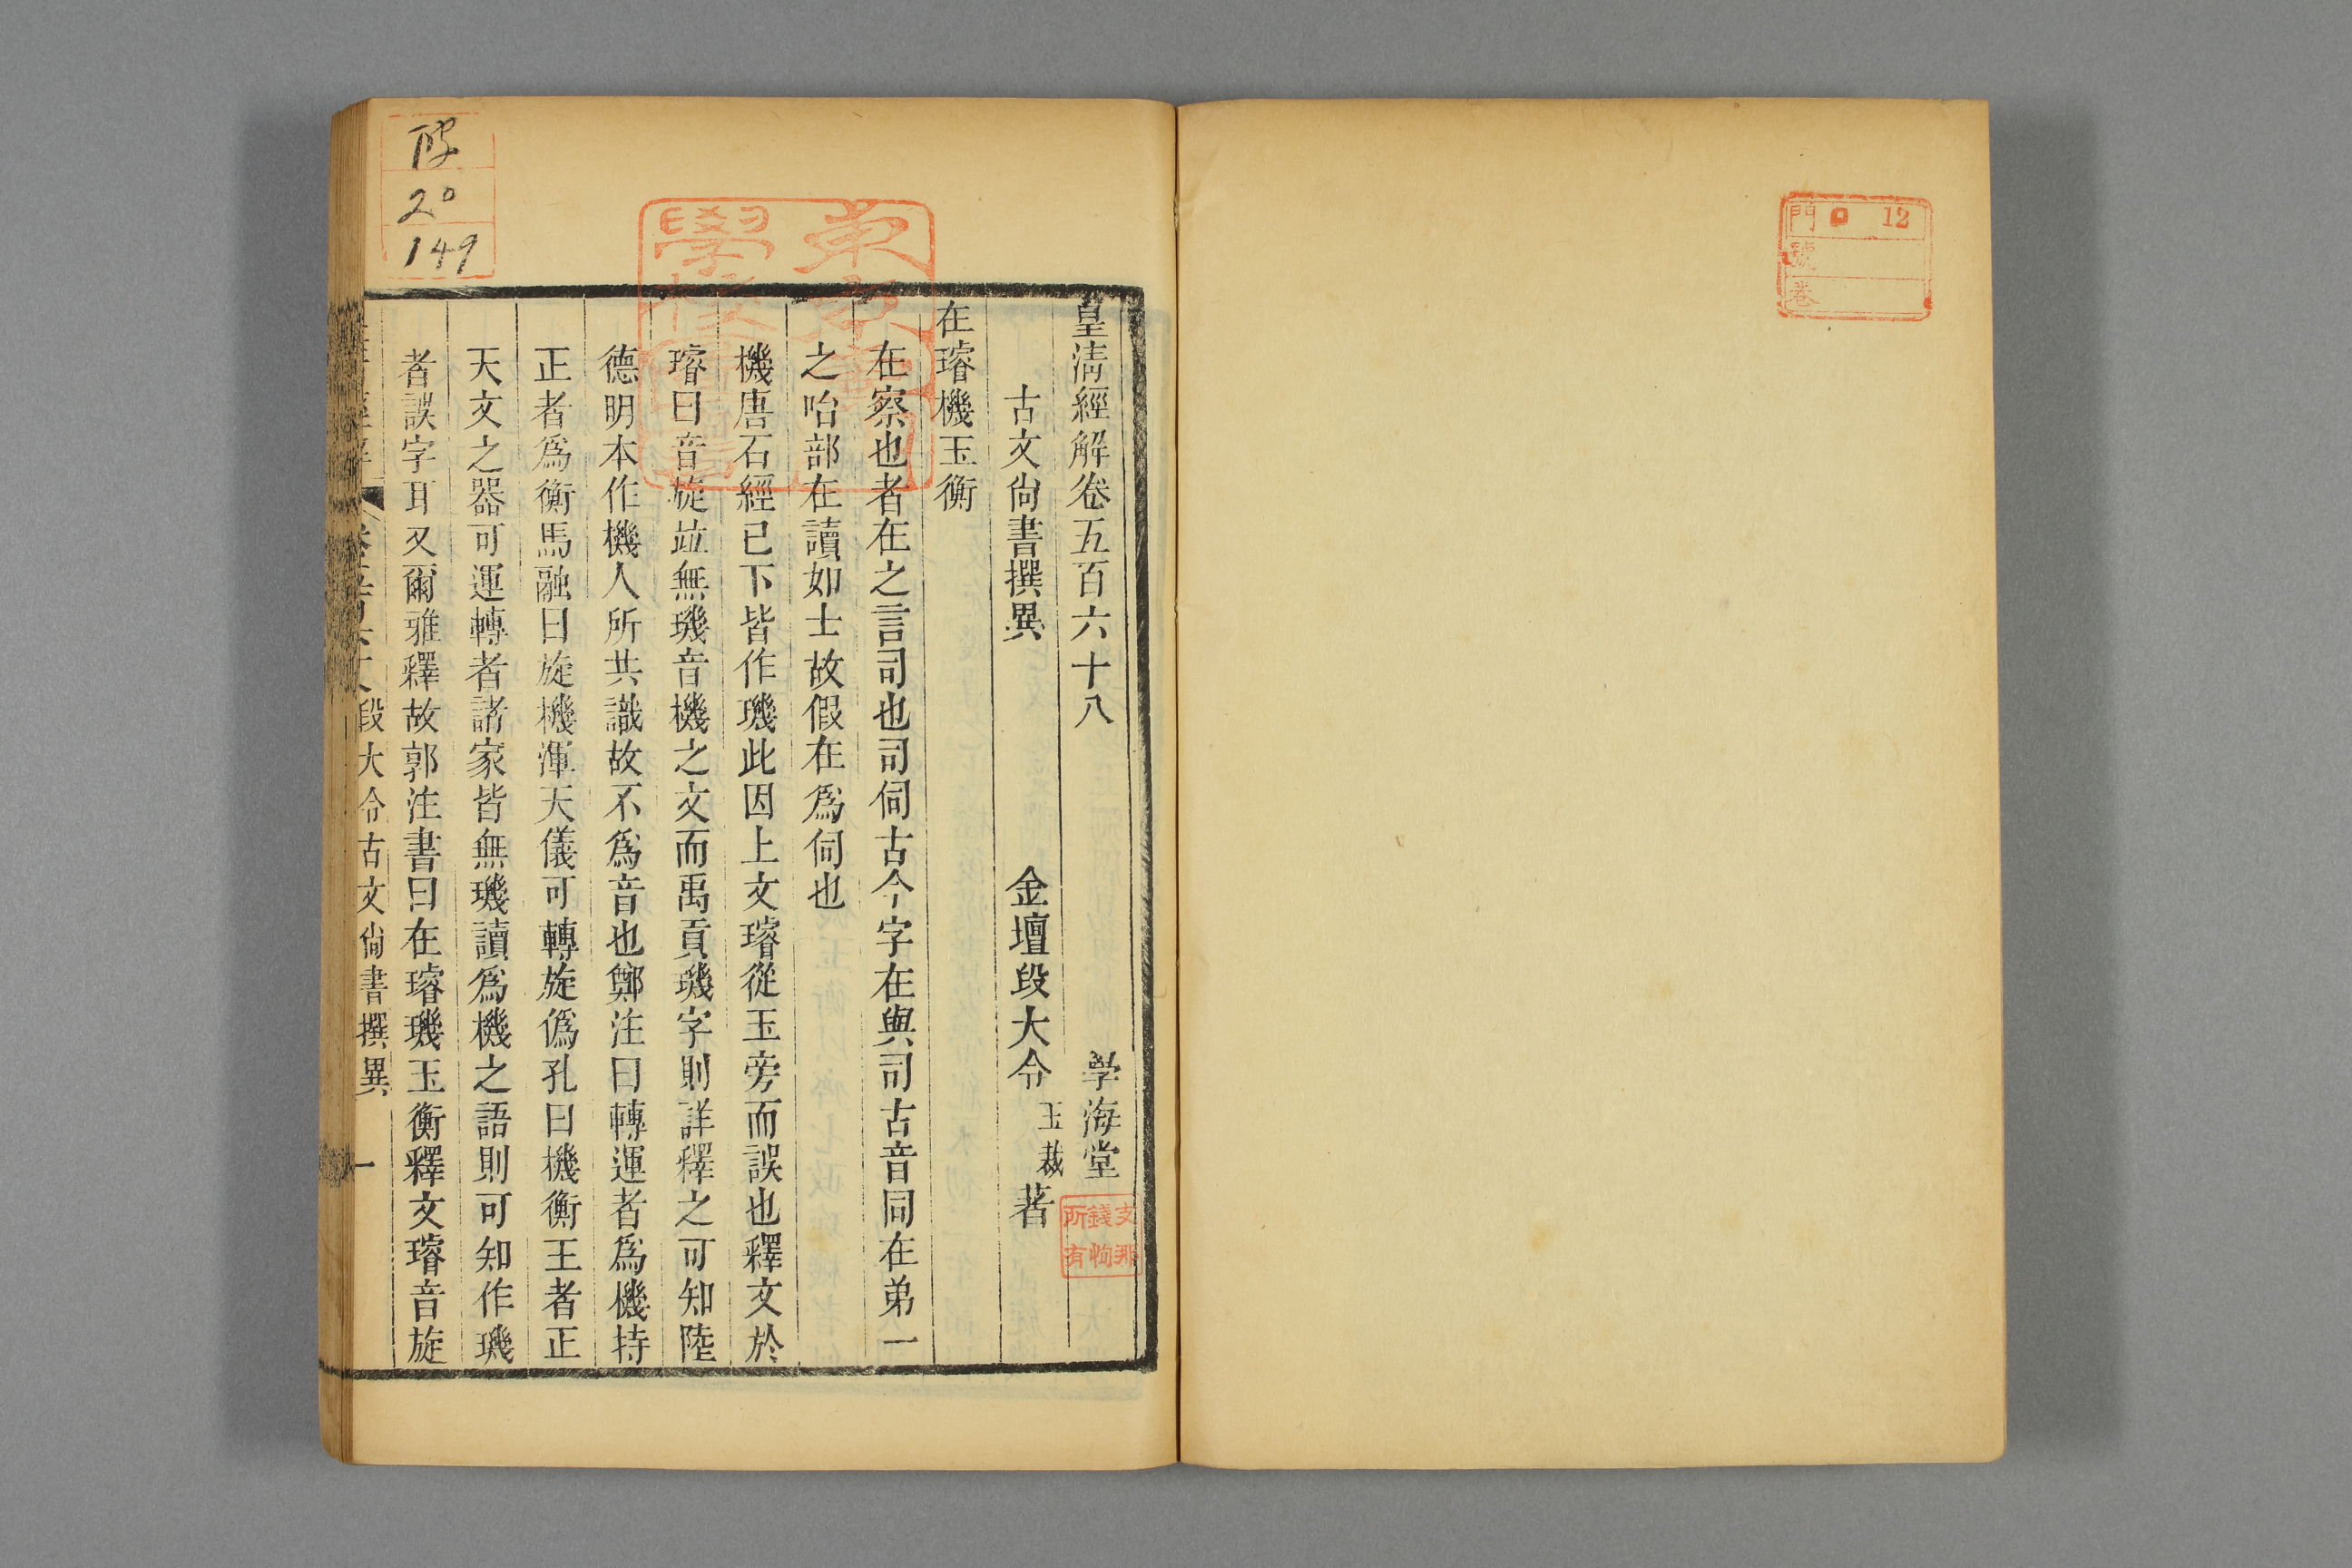 門 12
號
卷
皇淸經解卷五百六十八
學海堂
古文尙書撰異
金壇段大令玉裁著
在璿機玉衡
在察也者在之言司也司伺古今字在與司古音同在弟一
之咍部在讀如士故假在爲伺也
機唐石經已下皆作璣此因上文璿從玉旁而誤也釋文於
璿曰音旋竝無璣音機之文而禹貢璣字則詳釋之可知陸
德明本作機人所共識故不爲音也鄭注曰轉運者爲機持
正者爲衡馬融曰旋機渾天儀可轉旋僞孔曰機衡王者正
天文之器可運轉者諸家皆無璣讀爲機之語則可知作璣
者誤字耳又爾雅釋故郭注書曰在璿璣玉衡釋文璿音旋
段大令古文尙書撰異
一
支那
錢恂
所有
20
149